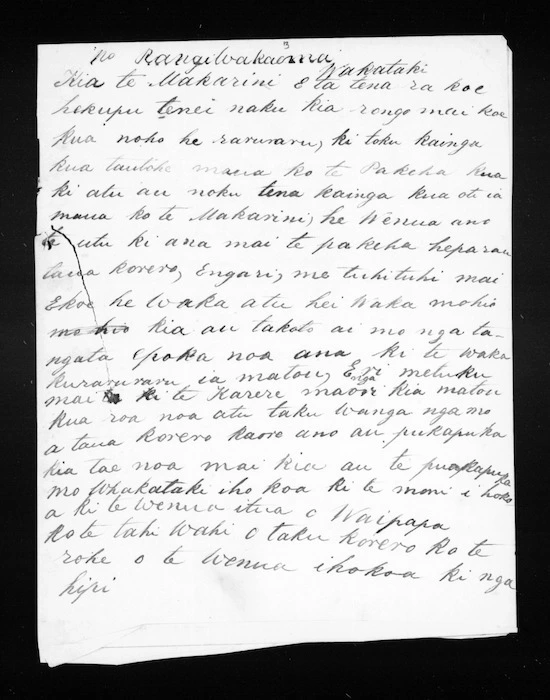 3
no Rangiwakaoma,
Wakataki
Kia te Makarini E ta tena ra koe
hekupu tenei naku kia rongo mai koe
kua noho he raruraru, ki toku kainga
kua tautohe maua ko te Pakeha kua
ki atu au noku tena kainga kua oti ia
maua ko te Makarini, he Wenua ano
te utu ki ana mai te pakeha heparau
taua korero, Engari, me tuhituhi mai
Ekoe he Waka atu hei Waka mohio
mo hio kia au takoto ai mo nga ta-
ngata epoka noa ana ki te waka
kuraruraru ia matou, Engari metuku
mai ki te Karere maori kia matou
kua roa noa atu taku Wanga nga mo
a taua korero kaore ano au pukapuka
kia tae noa mai kia au te pukapuka
mo Whakataki iho koa ki te moni i hoko
a ki te wenua itua o Waipapa
ko te tahi wahi o taku korero ko te
rohe o te wenua ihokoa ki nga
hipi